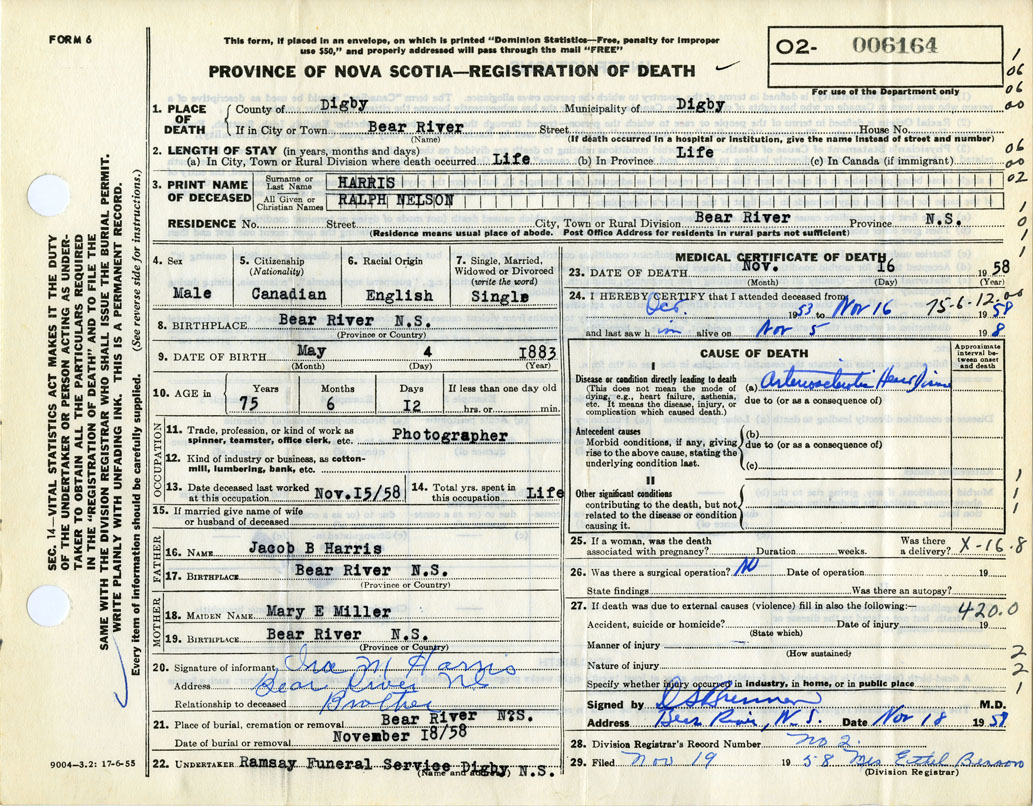 FORM 6
This form, if placed in an envelope, on which is printed "Dominion Statistics—Free, penalty for improper
use $50," and properly addressed will pass through the mail "FREE"
PROVINCE OF NOVA SCOTIA—REGISTRATION OF DEATH
O2- 006164
For use of the Department only
SEC. 14—VITAL STATISTICS ACT MAKES IT THE DUTY
OF THE UNDERTAKER OR PERSON ACTING AS UNDER-
TAKER TO OBTAIN ALL THE PARTICULARS REQUIRED
IN THE "REGISTRATION OF DEATH" AND TO FILE THE
SAME WITH THE DIVISION REGISTRAR WHO SHALL ISSUE THE BURIAL PERMIT.
WRITE PLAINLY WITH UNFADING INK. THIS IS A PERMANENT RECORD.
Every item of information should be carefully supplied. (See reverse side for instructions.)
1. PLACE OF DEATH County of Digby Municipality of Digby
If in City or Town Bear River Street House No.
(Name) (If death occurred in a hospital or institution, give the name instead of street and number)
2. LENGTH OF STAY (in years, months and days)
(a) In City, Town or Rural Division where death occurred Life (b) In Province Life (c) In Canada (if immigrant)
3. PRINT NAME OF DECEASED Surname or Last Name HARRIS
All Given or Christian Names RALPH NELSON
RESIDENCE No. Street City, Town or Rural Division Bear River Province N.S.
(Residence means usual place of abode. Post Office Address for residents in rural parts not sufficient)
4. Sex Male
5. Citizenship (Nationality) Canadian
6. Racial Origin English
7. Single, Married, Widowed or Divorced (write the word) Single
8. BIRTHPLACE Bear River N.S.
(Province or Country)
9. DATE OF BIRTH May 4 1883
(Month) (Day) (Year)
10. AGE in Years Months Days If less than one day old
75 6 12 hrs. or min.
OCCUPATION
11. Trade, profession, or kind of work as
spinner, teamster, office clerk, etc. Photographer
12. Kind of industry or business, as cotton-
mill, lumbering, bank, etc.
13. Date deceased last worked at this occupation Nov.15/58 14. Total yrs. spent in this occupation Life
15. If married give name of wife
or husband of deceased
FATHER
16. NAME Jacob B Harris
17. BIRTHPLACE Bear River N.S.
(Province or Country)
MOTHER
18. MAIDEN NAME Mary E Miller
19. BIRTHPLACE Bear River N.S.
(Province or Country)
20. Signature of informant Ira M Harris
Address Bear River NS
Relationship to deceased Brother
21. Place of burial, cremation or removal Bear River N.S.
Date of burial or removal November 18/58
22. UNDERTAKER Ramsay Funeral Service Digby N.S.
(Name and address)
9004—3.2: 17-6-55
MEDICAL CERTIFICATE OF DEATH
23. DATE OF DEATH Nov. 16 1958
(Month) (Day) (Year)
24. I HEREBY CERTIFY that I attended deceased from
Oct. 1953 to Nov 16 1958
75-6-12.00
and last saw him alive on Nov 5 198
CAUSE OF DEATH
Approximate interval between onset and death
I
Disease or condition directly leading to death
(This does not mean the mode of
dying, e.g., heart failure, asthenia,
etc. It means the disease, injury, or
complication which caused death.)
(a) Arteriosclerotic Heart Disease
due to (or as a consequence of)
Antecedent causes
Morbid conditions, if any, giving
rise to the above cause, stating the
underlying condition last.
(b)
due to (or as a consequence of)
(c)
II
Other significant conditions
contributing to the death, but not
related to the disease or condition
causing it.
25. If a woman, was the death
associated with pregnancy? Duration weeks. Was there a delivery? X-16.8
26. Was there a surgical operation? No Date of operation 19
State findings Was there an autopsy?
27. If death was due to external causes (violence) fill in also the following:—
420.0
Accident, suicide or homicide? Date of injury 19
(State which)
Manner of injury
(How sustained)
Nature of injury
Specify whether injury occured in industry, in homes, or in public place
Signed by M.D.
Address Bear River, N.S. Date Nov 18 1958
28. Division Registrar's Record Number No 2.
29. Filed Nov 19 1958 Mrs Ethel Benson
(Division Registrar)
1
06
06
00
06
00
02
1
0
1
1
1
1
2
2
1